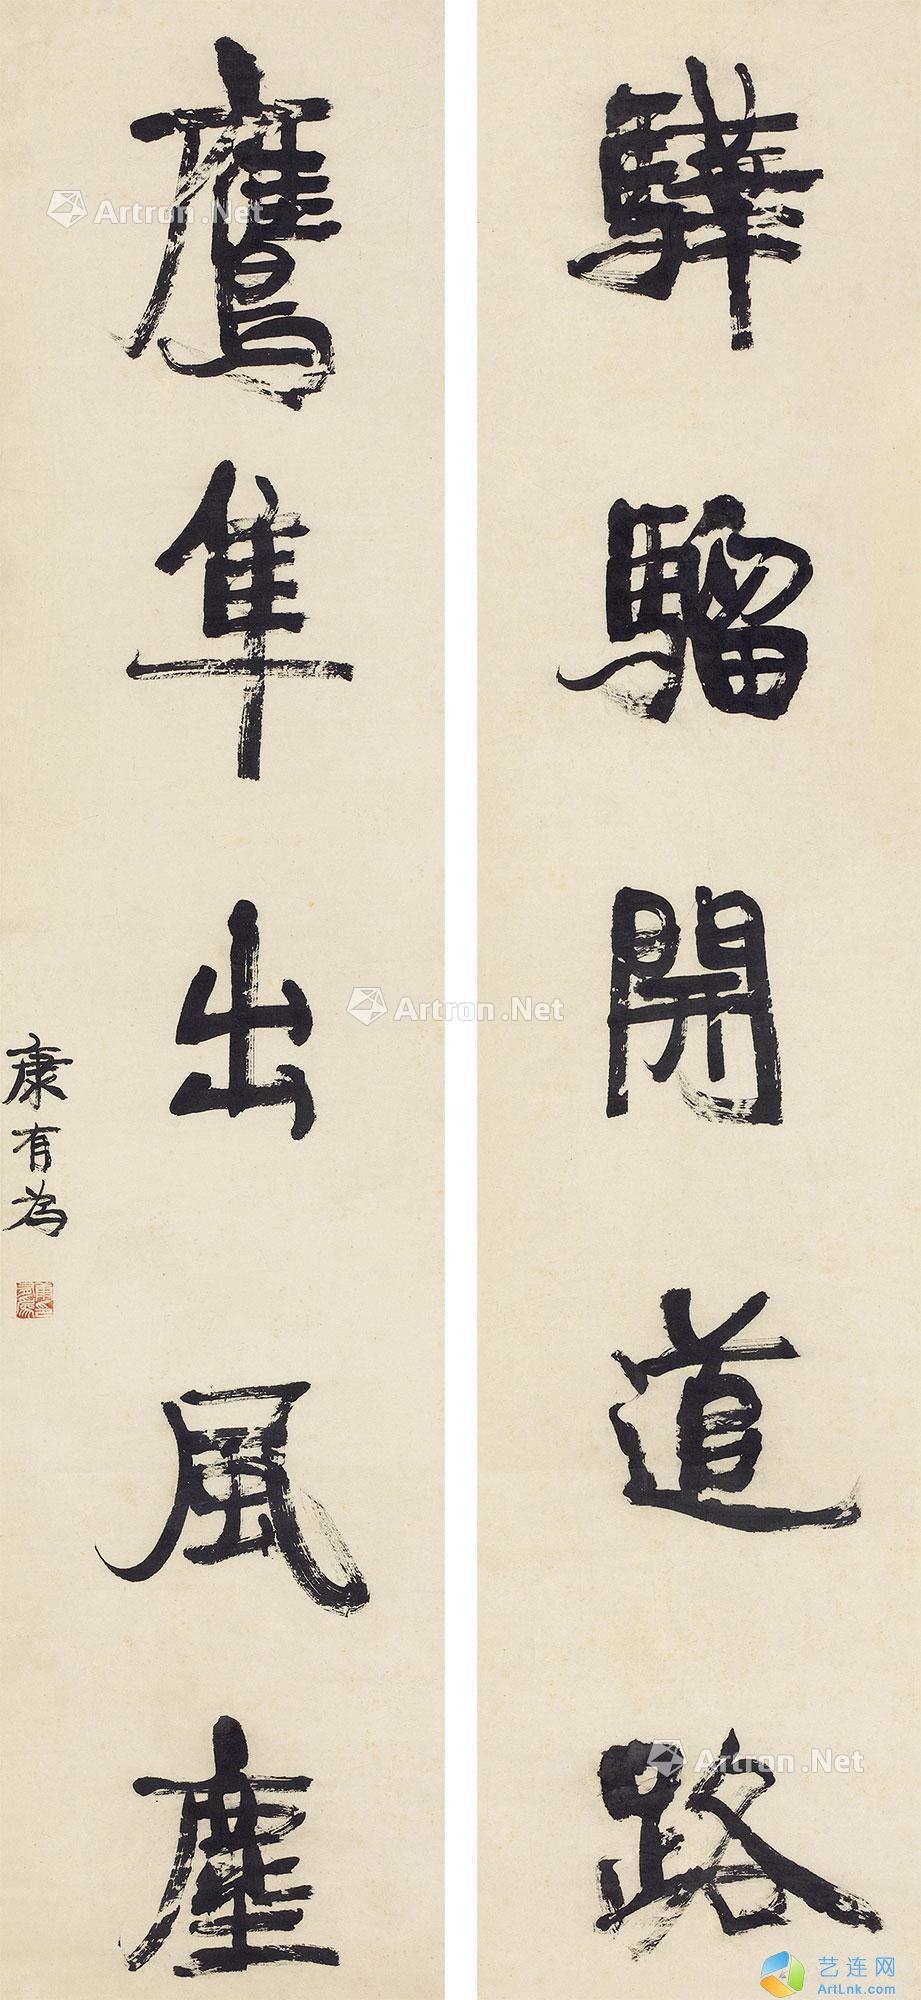 驊騮開道路
鷹隼出風塵
康有為
Artron.Net
Artron.Net
Artron.Net
艺连网
ArtLnk.com